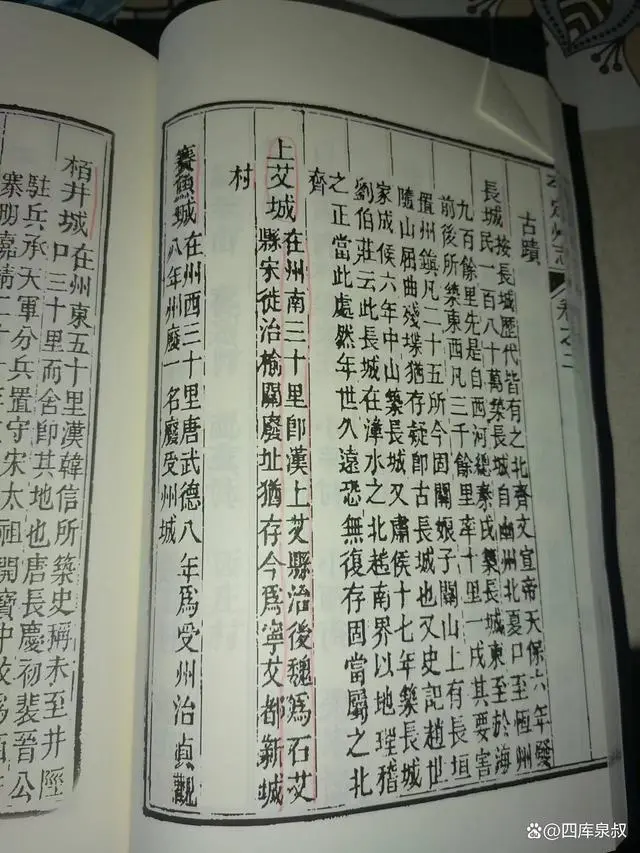 平定州志 卷之二
古蹟
長城按長城歷代皆有之北齊文宣帝天保六年發
民一百八十萬築長城自幽州北夏口至恆州
九百餘里先是自西河總秦戍築長城東至於海
前後所築東西凡三千餘里率十里一戍其要害
置州鎮凡二十五所今固關娘子關山上有長垣
隨山屈曲殘堞猶存疑即古長城也又史記趙世
家成侯六年中山築長城又肅侯十七年築長城
劉伯莊云此長城在漳水之北趙南界以地理稽
之正當此處然年世久遠恐無復存固當屬之北
齊
上艾城在州南三十里卽漢上艾縣治後魏爲石艾
縣宋徙治榆關廢址猶存今爲寧艾都新城
村
賽魚城在州西三十里唐武德八年爲受州治貞觀
八年州廢一名廢受州城
栢井城在州東五十里漢韓信所築史稱未至井陘
口三十里而舍卽其地也唐長慶初裴晉公
駐兵承天軍分兵置守宋太祖開寶中改爲
寨明嘉靖二十
百家号@四库泉叔